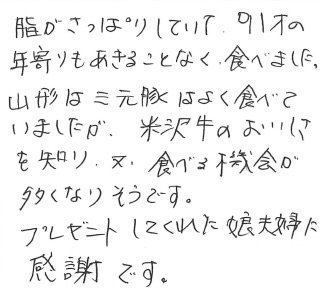 脂がさっぱりしていて、91才の
年寄りもあきることなく、食べました。
山形は三元豚はよく食べて
いましたが、米沢牛のおいしさ
も知り、又、食べる機会が
多くなりそうです。
プレゼントしてくれた娘夫婦に
感謝です。